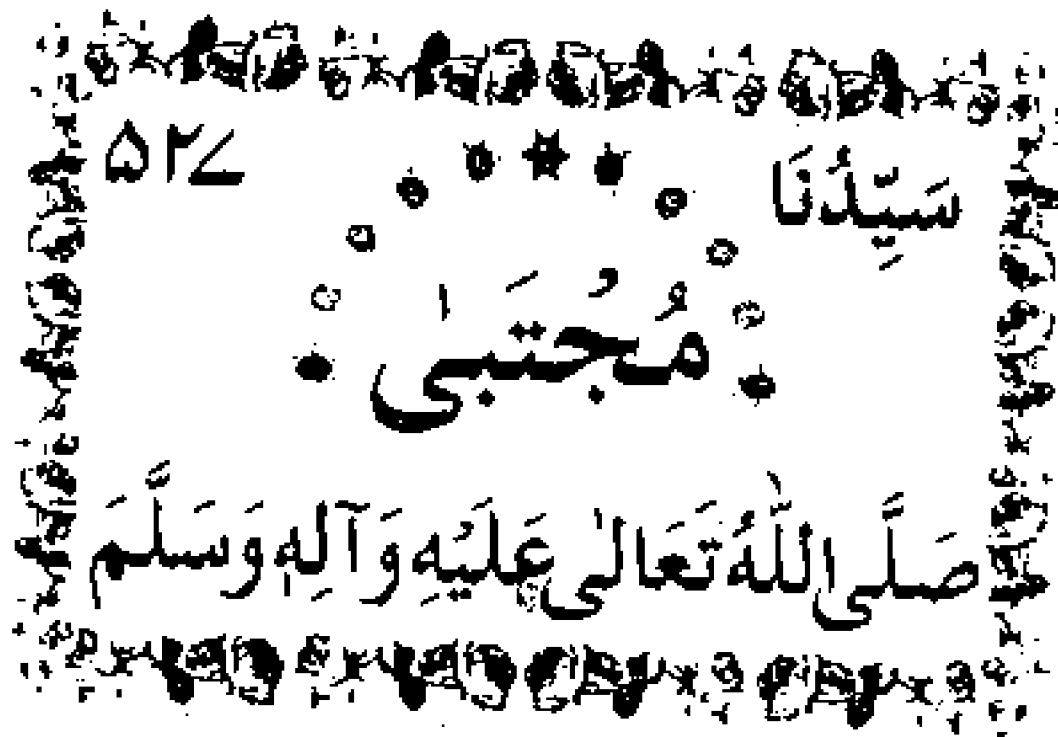 سَيِّدُنَا ۵۲؎
مُجْتَبٰى
صَلَّى اللّٰهُ تَعَالٰى عَلَيْهِ وَآلِهٖ وَسَلَّمَ